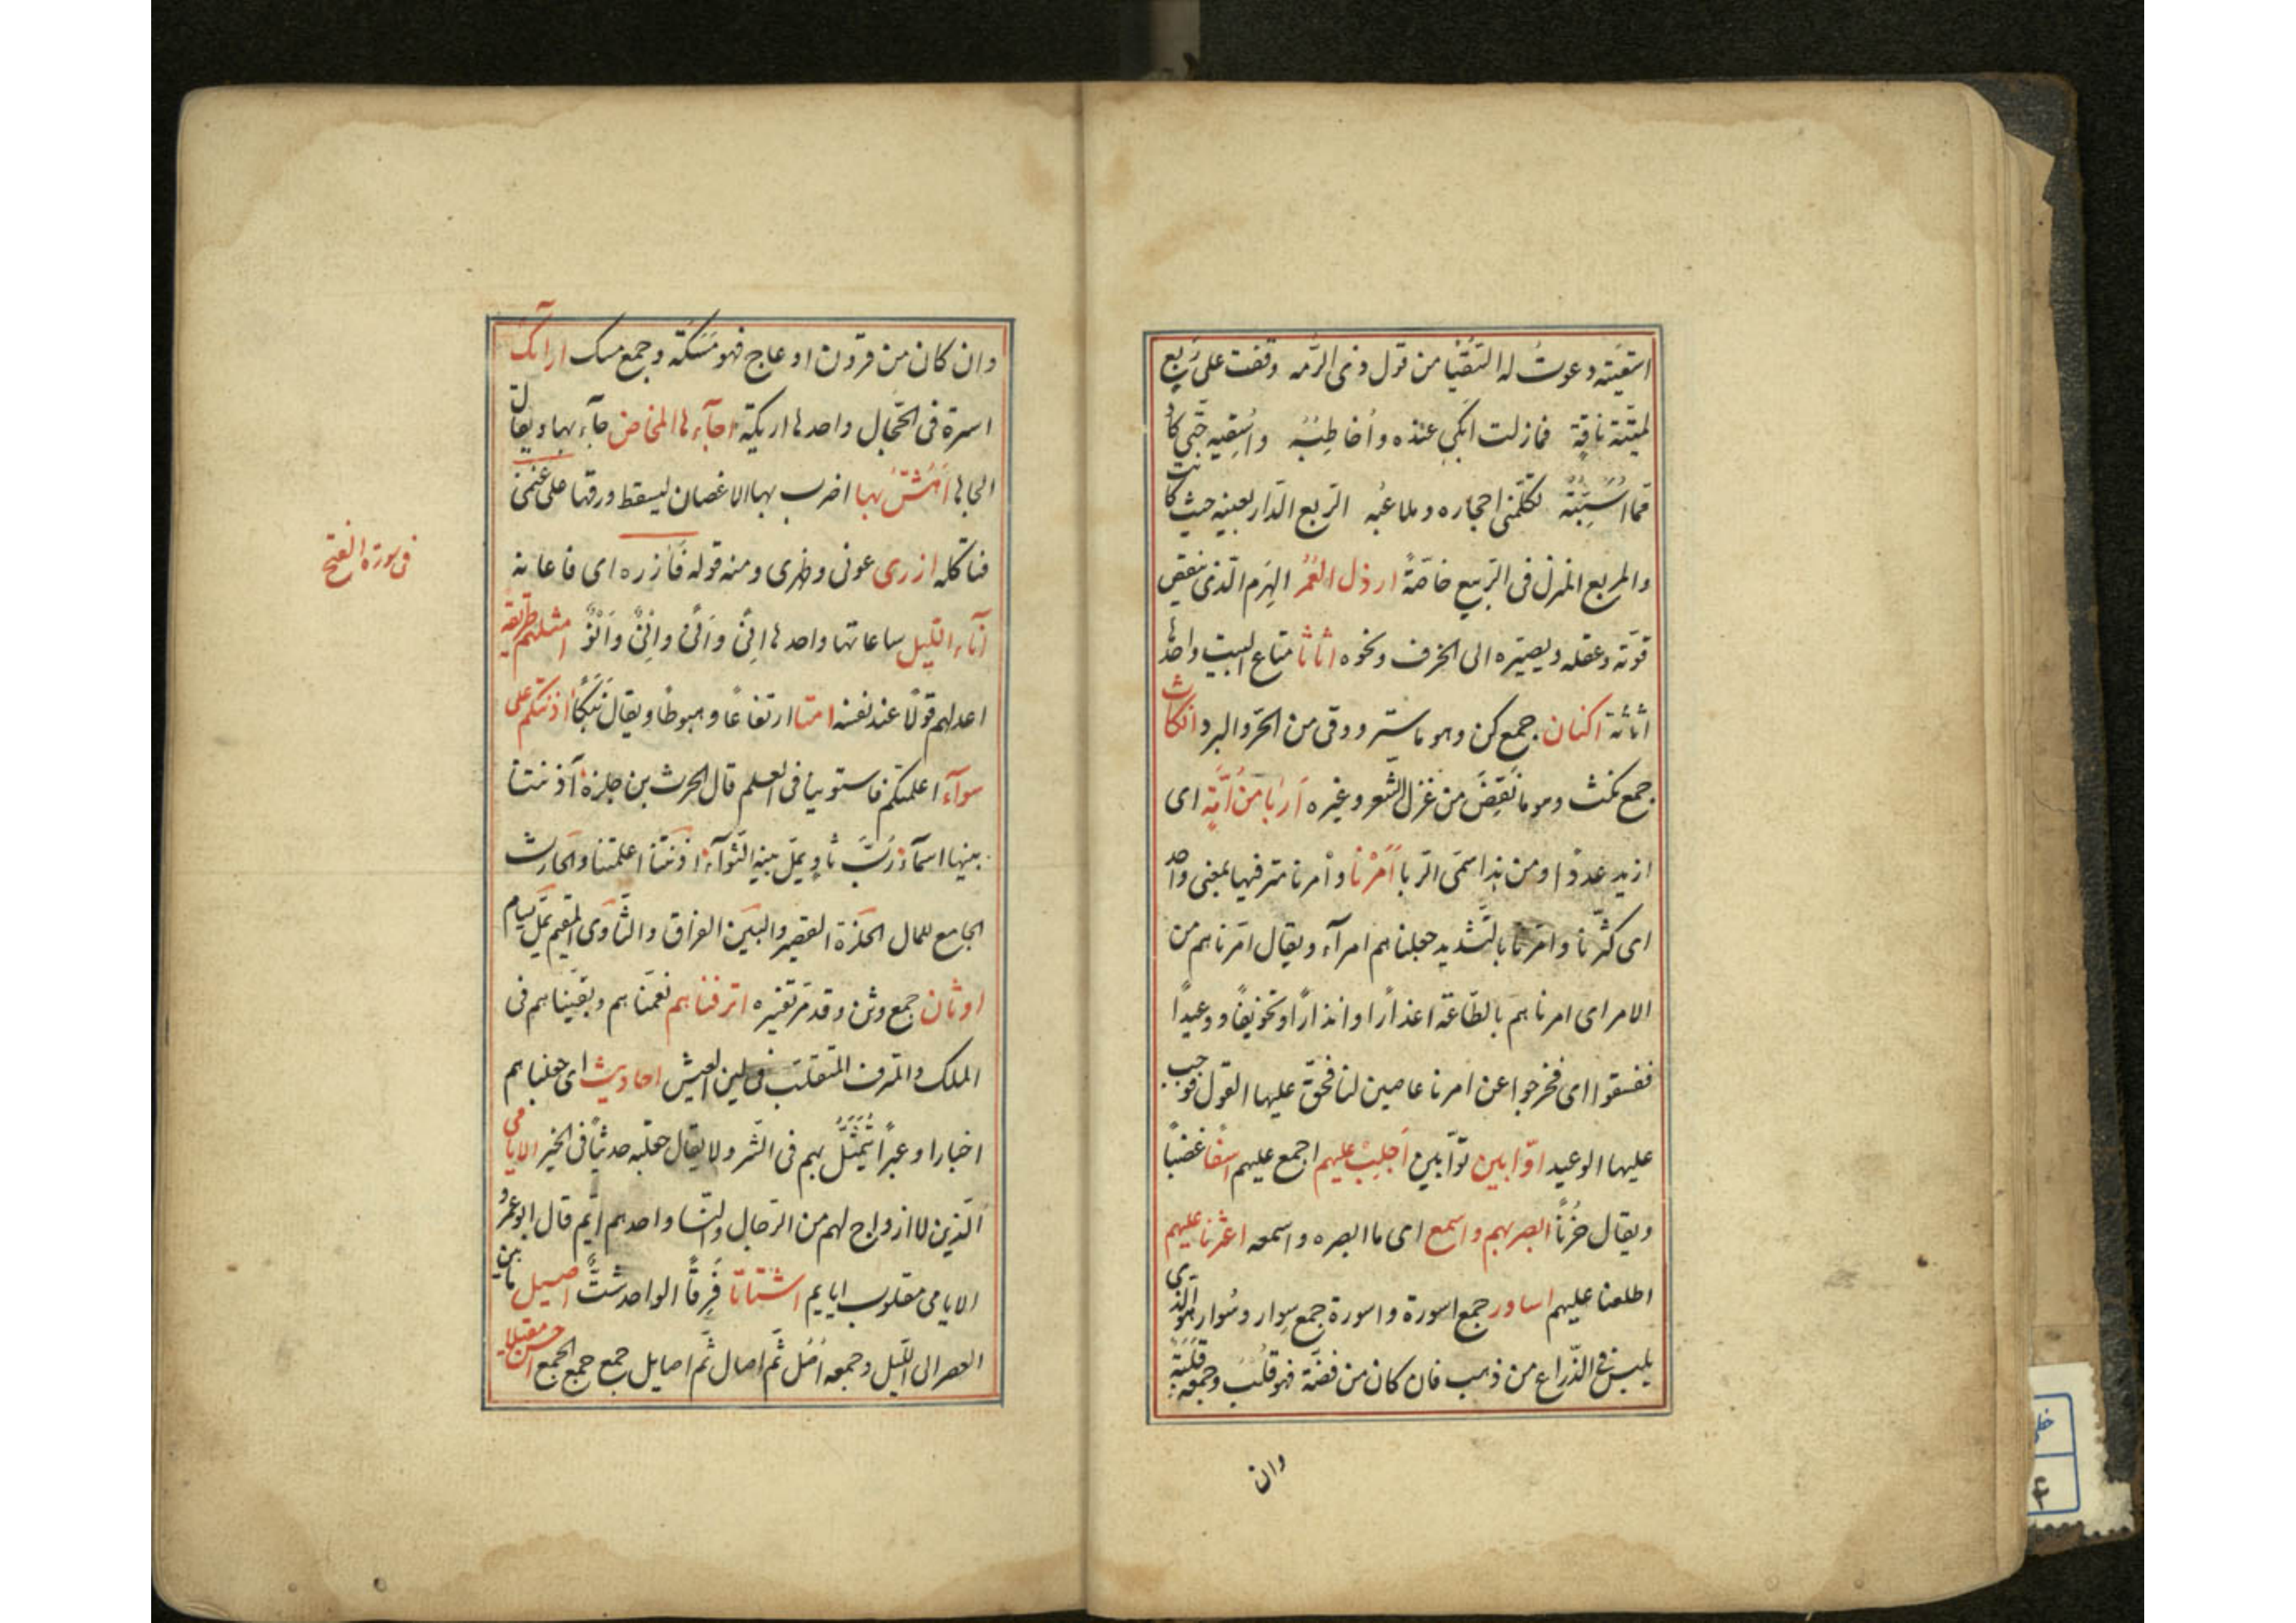 استقيته دعوت له التسقيا من قول ذى الرمه وقفت على ربع
لميّتة ناقتى فمازلت ابكى عنده واُخاطِبُهُ واُسْقيه حتى كاد
ممّا اُبِثّهُ تكلّمنى احجاره وملاعبُه الربع الدار بعينه حيث كانت
والمربع المنزل فى الربيع خاصّةً ارذل العُمُر الهَرِم الّذى ينقص
قوّته وعقله ويصيّره الى الخرف ونحوه اثاثا متاع البيت واحدها
اثاثة اكنان جمع كن وهو ما ستر ووقى من الحرّ والبرد انكاث
جمع نكث وهو ما نُقِضَ من غزل الشعر وغيره اَربا من اُمّةٍ اى
ازيد عددًا ومن هذا سمّى الرّبا اَمَرْنا وأمرنا مترفيها بمعنى واحد
اى كثّرنا وامّرنا بالتّشديد جعلناهم امرآء ويقال امرناهم من
الامر اى امرناهم بالطّاعة اعذارًا وانذارًا وتخويفًا ووعيدًا
ففسقوا اى فخرجوا عن امرنا عاصين لنا فحقّ عليها القول فوجب
عليها الوعيد اوّابين توّابين اَجلِبْ عليهم اجمع عليهم اسفًا غضبًا
ويقال حُزنًا ابصر بهم واسمع اى ما ابصره واسمعه اعثرنا عليهم
اطلعنا عليهم اساور جمع اسورة واسورة جمع سِوار وسُوار هو الذى
يلبس فى الذّراع من ذهب فان كان من فضّة فهو قُلْب وجمعه قلبة
وان
وان كان من قرون او عاج فهو مَسَكَة وجمع مسك ارآئك
اسرة فى الحِجال واحدها اريكة اجآءها المخاض جآء بها ويقال
الجاها اَهُشّ بها اضرب بها الاغصان ليسقط ورقها على غنمى
فتاكله ازرى عونى وظهرى ومنه قوله فَازره اى فاعانه
فى سورة الفتح
آنآء اللّيل ساعاتها واحدها اِنًى وَاَنًى وانِىٌ وَاِنْوٌ امثلهم طريقة
اعدلهم قولًا عند نفسه امتا ارتفاعًا وهبوطًا ويقال نَبَكًا اذنتكم على
سوآء اعلمتكم فاستوينا فى العلم قال الحرث بن حلزة آذنتنا
ببينها اسمآء رُبّ ثاوٍ يملّ منه الثّوآء اذنتنا اعلمتنا والحارث
الجامع للمال الحلزة القصير والبين الفراق والثّاوى المقيم يملّ يسام
اوثان جمع وثن وقد مرّ تفسيره اترفناهم نعّمناهم وبقّيناهم فى
الملك والمترف المتقلّب فى لين العيش احاديث اى جعلناهم
اخبارا وعبرًا يُتَمَثَّلُ بهم فى الشّر ولا يقال جعلته حديثًا فى الخير الايامى
الّذين لا ازواج لهم من الرّجال والنّسا واحدهم ايّم قال ابو عمرو
الايامى مقلوب ايايم اشتاتًا فِرقًا الواحد شتٌّ اصيل ما بين
العصر الى اللّيل وجمعه اُصُل ثمّ اصال ثمّ اصايل جمع جمع الجمع احسن مقيلا